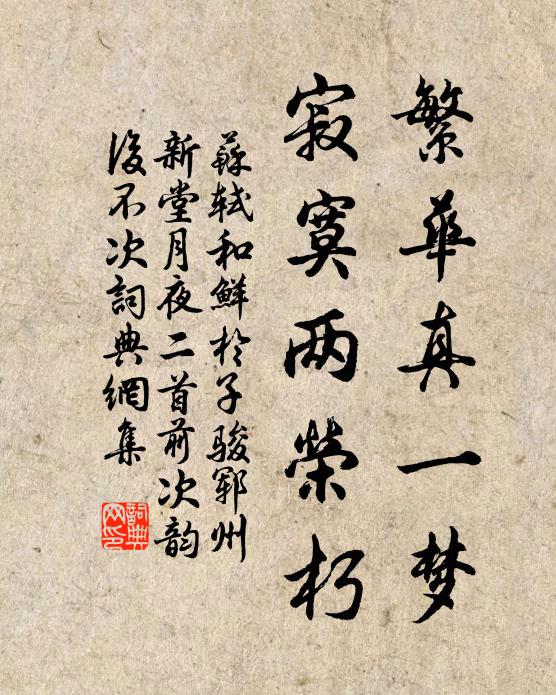 繁華真一梦
寂寞两榮朽
蘇軾和鮮於子駿鄆州
新堂月夜二首前次韵
後不次詞典網集
詞典
网印